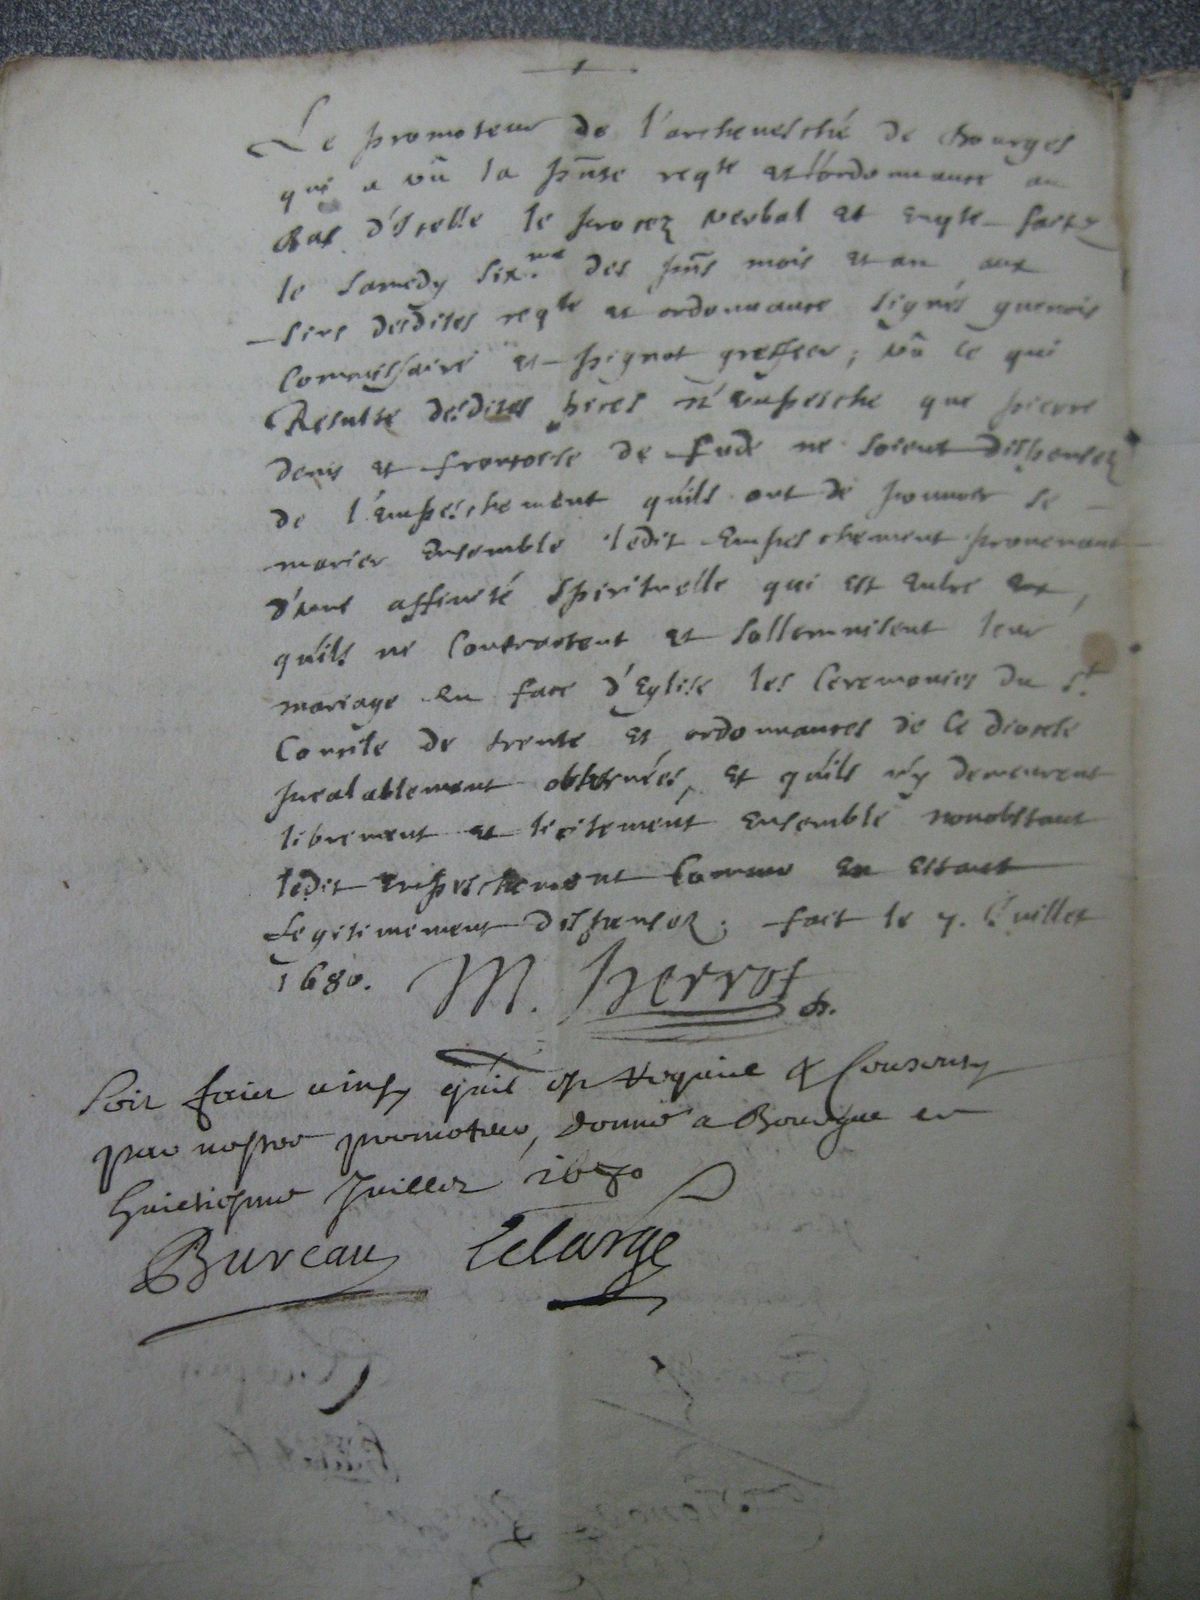 Le promoteur de l'archevesché de Bourges
qui a vû la pñte reqte et l'ordonnance au
Bas d'icelle le procez verbal et enqte faitz
le samedy sixme des pñs mois et an aux
fins desdites reqte et ordonnance signés guenois
Commissaire et pignot greffier; vû ce qui
Resulte desdites pieces n'empesche que pierre
denis et françoise de ne soient dispensez
de l'empeschement qu'ils ont de pouvoir se
marier ensemble ledit empeschement provenant
d'une affinité spirituelle qui est entre eux,
qu'ils ne contractent et sollemnisent leur
mariage en face d'Eglise les ceremonies du st
Concile de trente et ordonnances de ce diocese
prealablement observées, et qu'ils n'y demeurent
librement et licitement ensemble nonobstant
ledit empeschement comme en estant
Legitimement dispensez; fait le 7. Juillet
1680. M. perrot
Soit faict ainsy qu'il est requis & consenty
par nostre promoteur, donné a Bourges le
huictiesme Juillet 1680
Bureau Lelarge